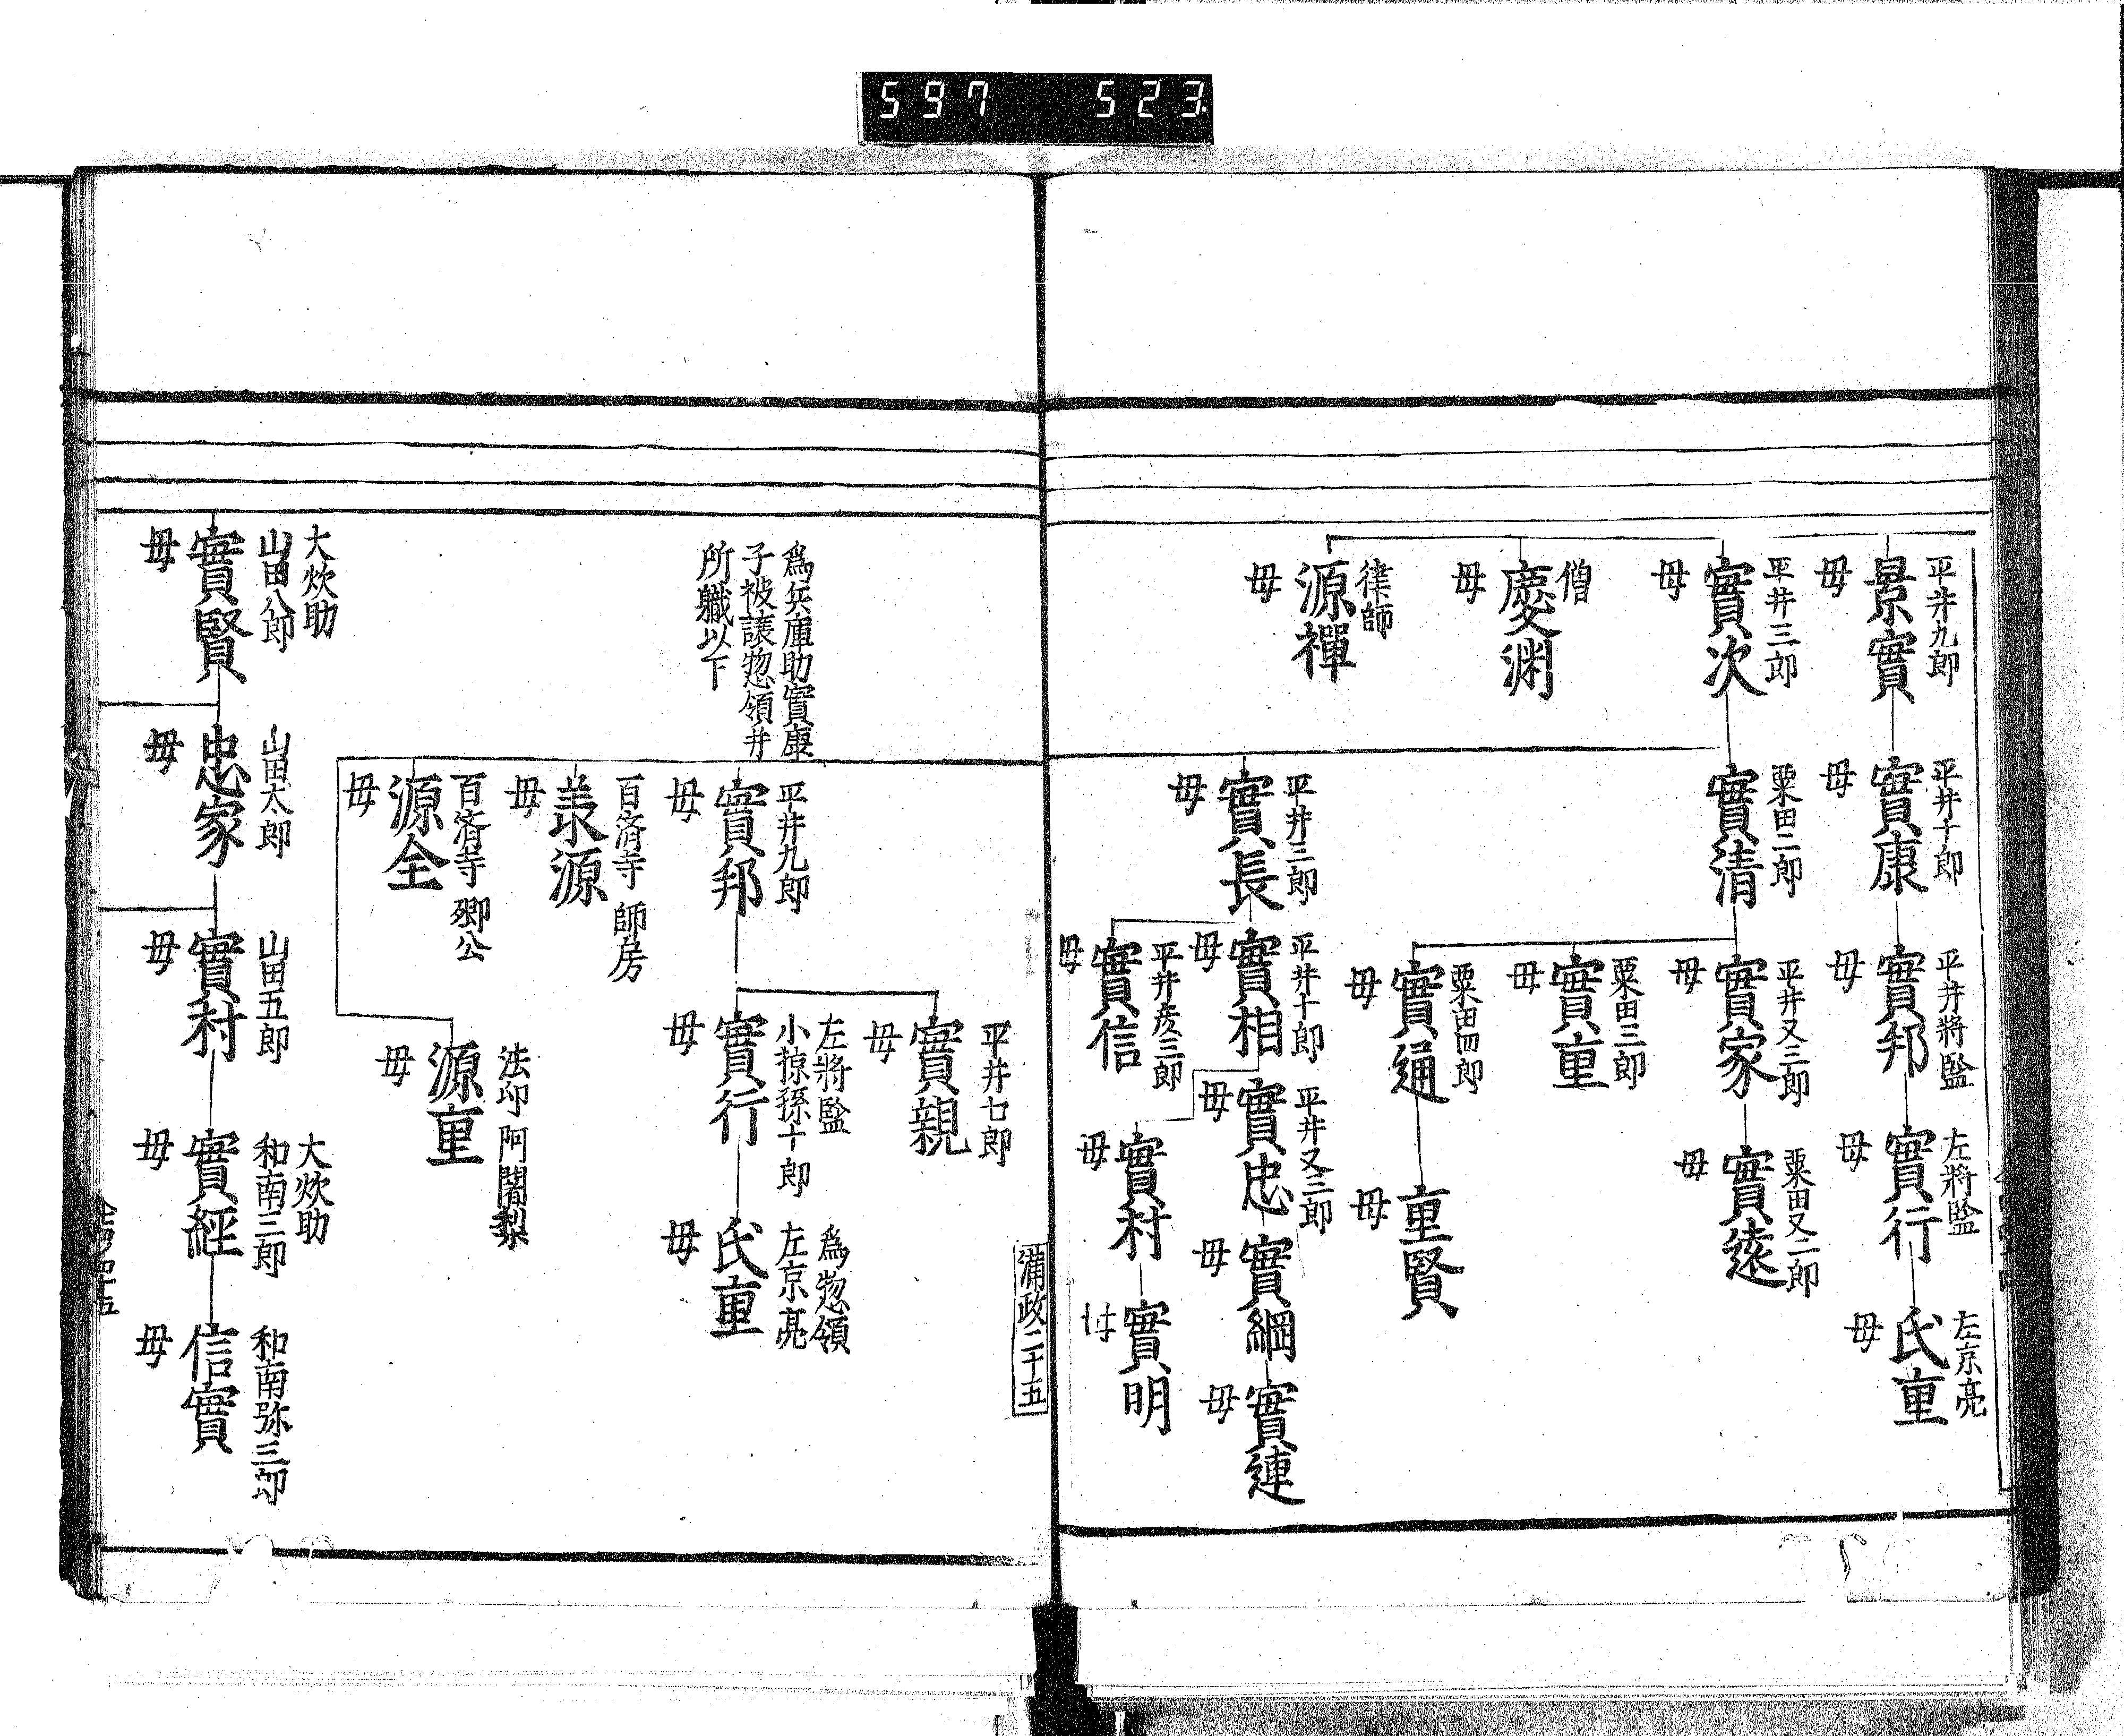 597 523
平井九郎
景實
母
平井十郎
實康
母
平井將監
實邦
母
左將監
實行
母
左京亮
氏重
母
平井三郎
實次
母
粟田二郎
實清
母
平井又三郎
實家
母
粟田又二郎
實遠
母
僧
慶渊
母
粟田三郎
實重
母
律師
源禪
母
粟田四郎
實通
母
重賢
母
平井三郎
實長
母
平井十郎
實相
母
平井又三郎
實忠
母
實綱
母
實連
母
平井彦三郎
實信
母
實村
母
實明
平井七郎
實親
母
為兵庫助實康
子被譲惣領并
所職以下
平井九郎
實邦
母
左將監
小椋孫十郎
實行
母
為惣領
左京亮
氏重
母
百済寺 師房
源
母
百済寺 卿公
源全
母
法印 阿闍梨
源重
母
大炊助
山田八郎
實賢
母
山田太郎
忠家
母
山田五郎
實村
母
大炊助
和南三郎
實經
母
和南弥三郎
信實
母